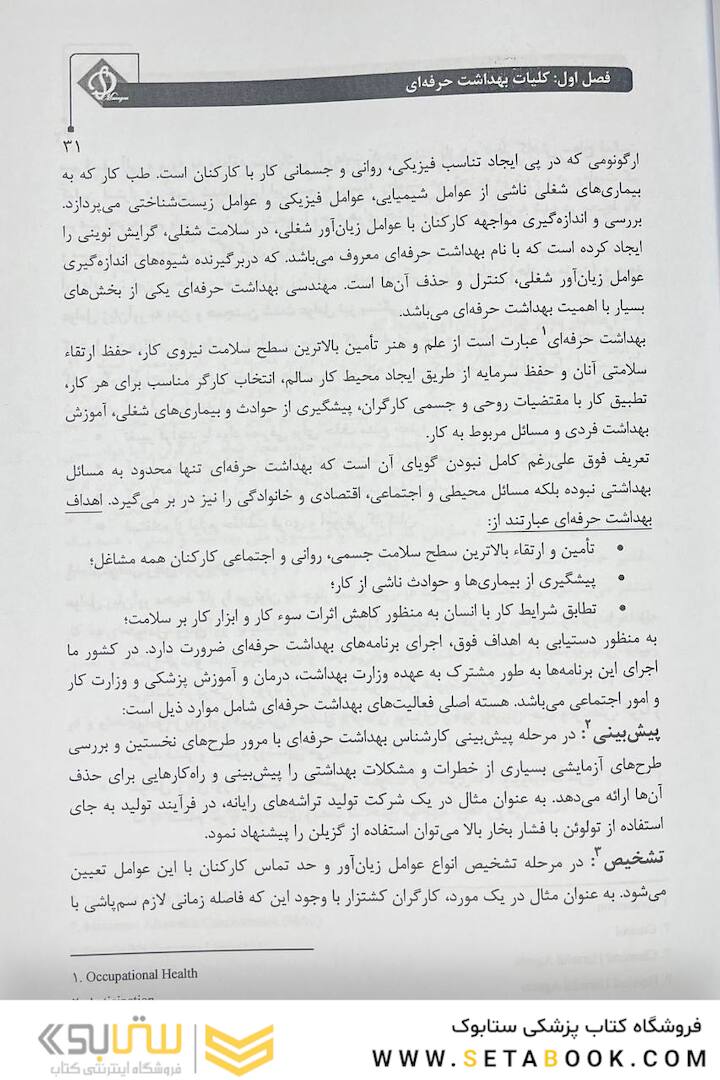 فصل اول: کلیات بهداشت حرفه‌ای
۳۱
ارگونومی که در پی ایجاد تناسب فیزیکی، روانی و جسمانی کار با کارکنان است. طب کار که به
بیماری‌های شغلی ناشی از عوامل شیمیایی، عوامل فیزیکی و عوامل زیست‌شناختی می‌پردازد.
بررسی و اندازه‌گیری مواجهه کارکنان با عوامل زیان‌آور شغلی، در سلامت شغلی، گرایش نوینی را
ایجاد کرده است که با نام بهداشت حرفه‌ای معروف می‌باشد. که دربرگیرنده شیوه‌های اندازه‌گیری
عوامل زیان‌آور شغلی، کنترل و حذف آن‌ها است. مهندسی بهداشت حرفه‌ای یکی از بخش‌های
بسیار با اهمیت بهداشت حرفه‌ای می‌باشد.
بهداشت حرفه‌ای۱ عبارت است از علم و هنر تأمین بالاترین سطح سلامت نیروی کار، حفظ ارتقاء
سلامتی آنان و حفظ سرمایه از طریق ایجاد محیط کار سالم، انتخاب کارگر مناسب برای هر کار،
تطبیق کار با مقتضیات روحی و جسمی کارگران، پیشگیری از حوادث و بیماری‌های شغلی، آموزش
بهداشت فردی و مسائل مربوط به کار.
تعریف فوق علی‌رغم کامل نبودن گویای آن است که بهداشت حرفه‌ای تنها محدود به مسائل
بهداشتی نبوده بلکه مسائل محیطی و اجتماعی، اقتصادی و خانوادگی را نیز در بر می‌گیرد. اهداف
بهداشت حرفه‌ای عبارتند از:
• تأمین و ارتقاء بالاترین سطح سلامت جسمی، روانی و اجتماعی کارکنان همه مشاغل؛
• پیشگیری از بیماری‌ها و حوادث ناشی از کار؛
• تطابق شرایط کار با انسان به منظور کاهش اثرات سوء کار و ابزار کار بر سلامت؛
به منظور دستیابی به اهداف فوق، اجرای برنامه‌های بهداشت حرفه‌ای ضرورت دارد. در کشور ما
اجرای این برنامه‌ها به طور مشترک به عهده وزارت بهداشت، درمان و آموزش پزشکی و وزارت کار
و امور اجتماعی می‌باشد. هسته اصلی فعالیت‌های بهداشت حرفه‌ای شامل موارد ذیل است:
پیش‌بینی۲: در مرحله پیش‌بینی کارشناس بهداشت حرفه‌ای با مرور طرح‌های نخستین و بررسی
طرح‌های آزمایشی بسیاری از خطرات و مشکلات بهداشتی را پیش‌بینی و راه‌کارهایی برای حذف
آن‌ها ارائه می‌دهد. به عنوان مثال در یک شرکت تولید تراشه‌های رایانه، در فرآیند تولید به جای
استفاده از تولوئن با فشار بخار بالا می‌توان استفاده از گزیلن را پیشنهاد نمود.
تشخیص۳: در مرحله تشخیص انواع عوامل زیان‌آور و حد تماس کارکنان با این عوامل تعیین
می‌شود. به عنوان مثال در یک مورد، کارگران کشتزار با وجود این که فاصله زمانی لازم سم‌پاشی با
۱. Occupational Health
فروشگاه کتاب پزشکی ستابوک
WWW.SETABOOK.COM
ستابوک
فروشگاه اینترنتی کتاب